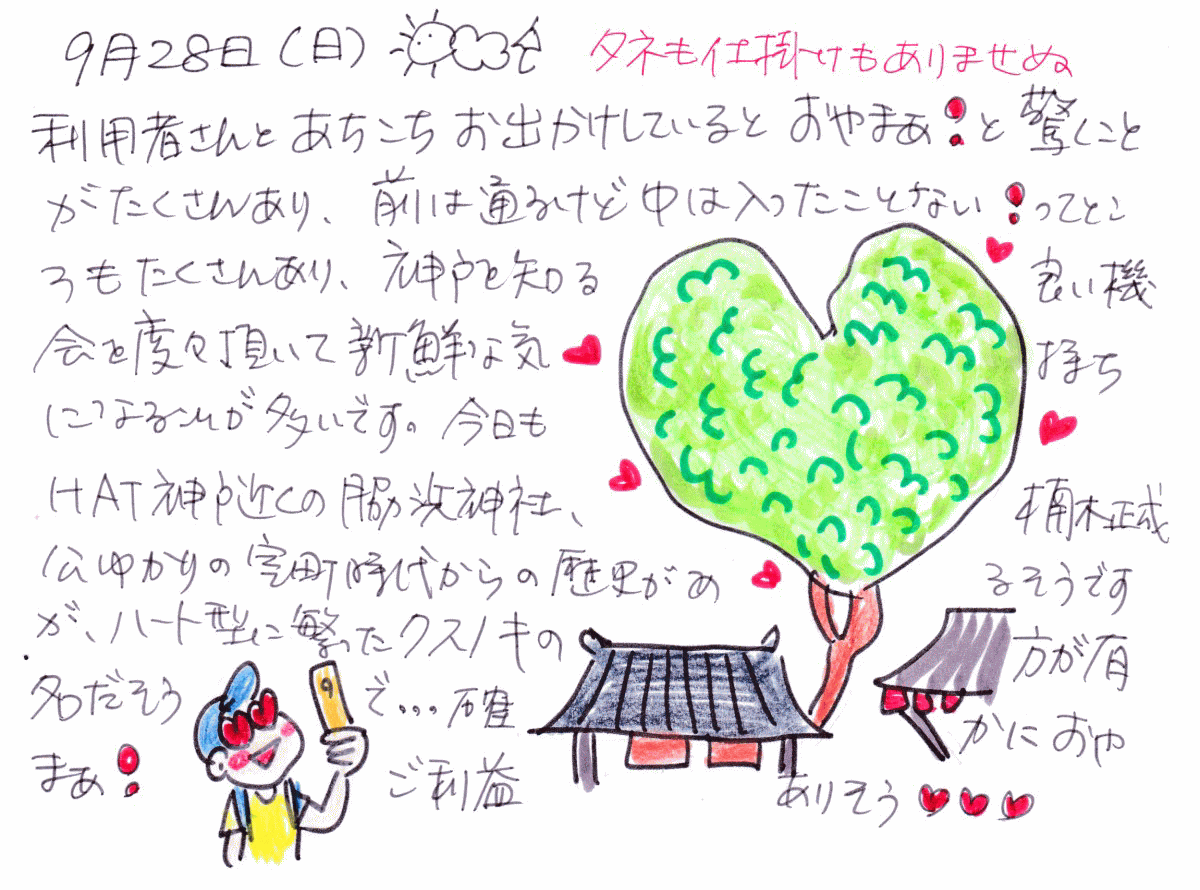 9月28日(日) タネも仕掛けもありませぬ
利用者さんとあちこちお出かけしていると おやまぁ❗と驚くこと
がたくさんあり、前は通るけど中は入ったことない❗ってとこ
ろもたくさんあり、神戸を知る 良い機
会を度々頂いて新鮮な気 持ち
になる事が多いです。今日も
HAT神戸近くの脇浜神社、 楠木正成
公ゆかりの室町時代からの歴史があ るそうです
が、ハート型に繁ったクスノキの 方が有
名だそう で...確 かにおや
まぁ❗ ご利益 ありそう♥♥♥
9